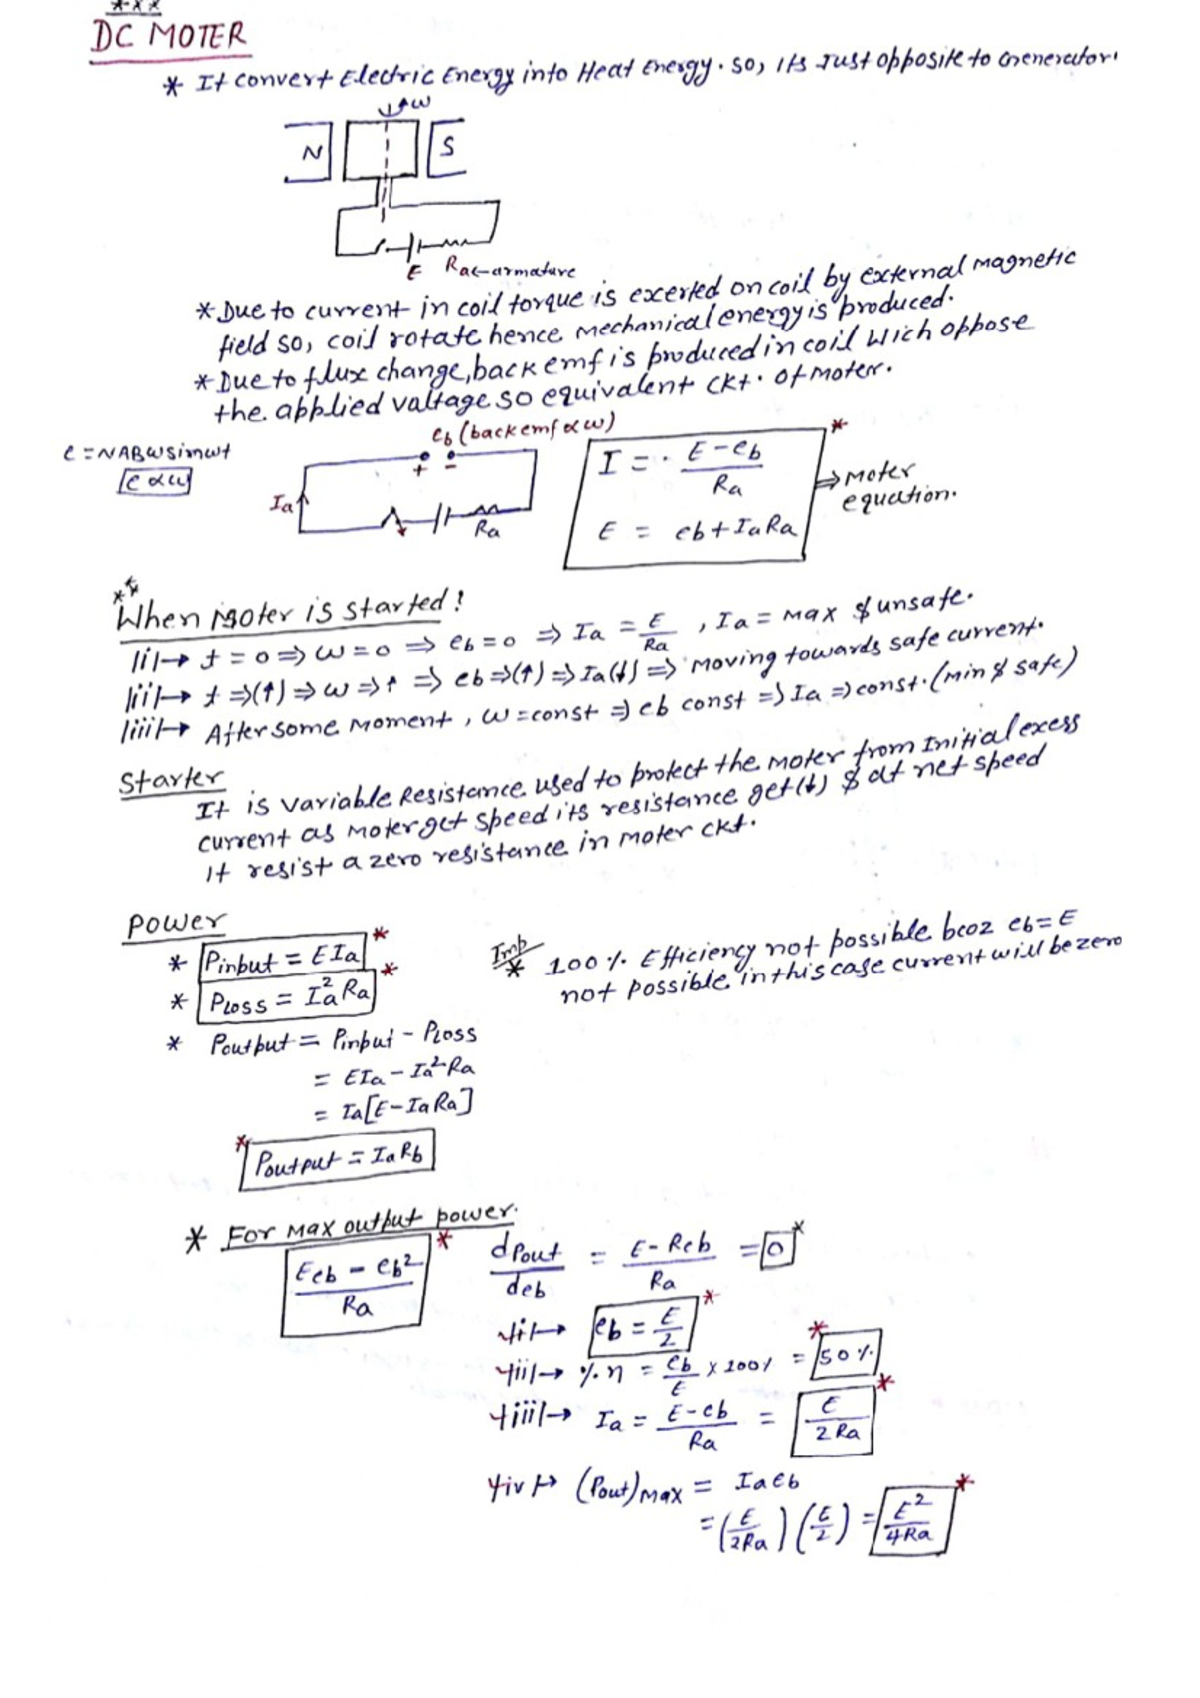 ***
DC MOTER
* It convert Electric Energy into Heat Energy. so, its Just opposite to Genenerator.
ω
N S
E Ra←armature
* Due to current in coil torque is excerted on coil by external magnetic
field so, coil rotate hence mechanical energy is produced.
* Due to flux change, back emf is produced in coil Wich oppose
the applied valtage so equivalent ckt. of moter.
e = NABωsinωt
e ∝ ω
eb (back emf ∝ ω)
+ -
Ia
Ra
I = E - eb / Ra
E = eb + IaRa
*
⇒ Moter
equation.
**
When Moter is started!
|i|→ t = 0 ⇒ ω = 0 ⇒ eb = 0 ⇒ Ia = E/Ra , Ia = max & unsafe.
|ii|→ t ⇒(↑) ⇒ ω ⇒↑ ⇒ eb ⇒(↑) ⇒ Ia(↓) ⇒ moving towards safe current.
|iii|→ After some moment, ω = const ⇒ eb const ⇒ Ia ⇒ const. (min & safe)
Starter
It is variable Resistance used to protect the moter from Initial exess
current as moter get speed its resistance get (↓) & at net speed
it resist a zero resistance in moter ckt.
Power
* Pinput = EIa *
* PLoss = Ia²Ra *
* Poutput = Pinput - PLoss
= EIa - Ia²Ra
= Ia[E - IaRa]
* Poutput = IaRb
Imp
* 100% Efficiency not possible bcoz eb = E
not possible in this case current will be zero
* For max output power.
Eeb - eb² / Ra *
dPout/deb = E - Reb / Ra = 0 *
|i|→ eb = E/2 *
|ii|→ %η = eb/E × 100% = 50% *
|iii|→ Ia = E - eb / Ra = E/2Ra *
|iv|→ (Pout)max = Iaeb
= (E/2Ra) (E/2) = E²/4Ra *